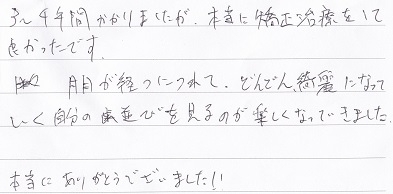 3~4年間かかりましたが、本当に矯正治療をして
良かったです。
月日が経つにつれて、どんどん綺麗になって
いく自分の歯並びを見るのが楽しくなっていきました。
本当にありがとうございました!!